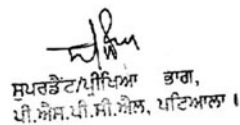 ਸੁਪਰਡੈਂਟ/ਪ੍ਰੀਪਿਆ ਭਾਗ,
ਪੀ.ਐਸ.ਪੀ.ਸੀ.ਐਲ, ਪਟਿਆਲਾ ।